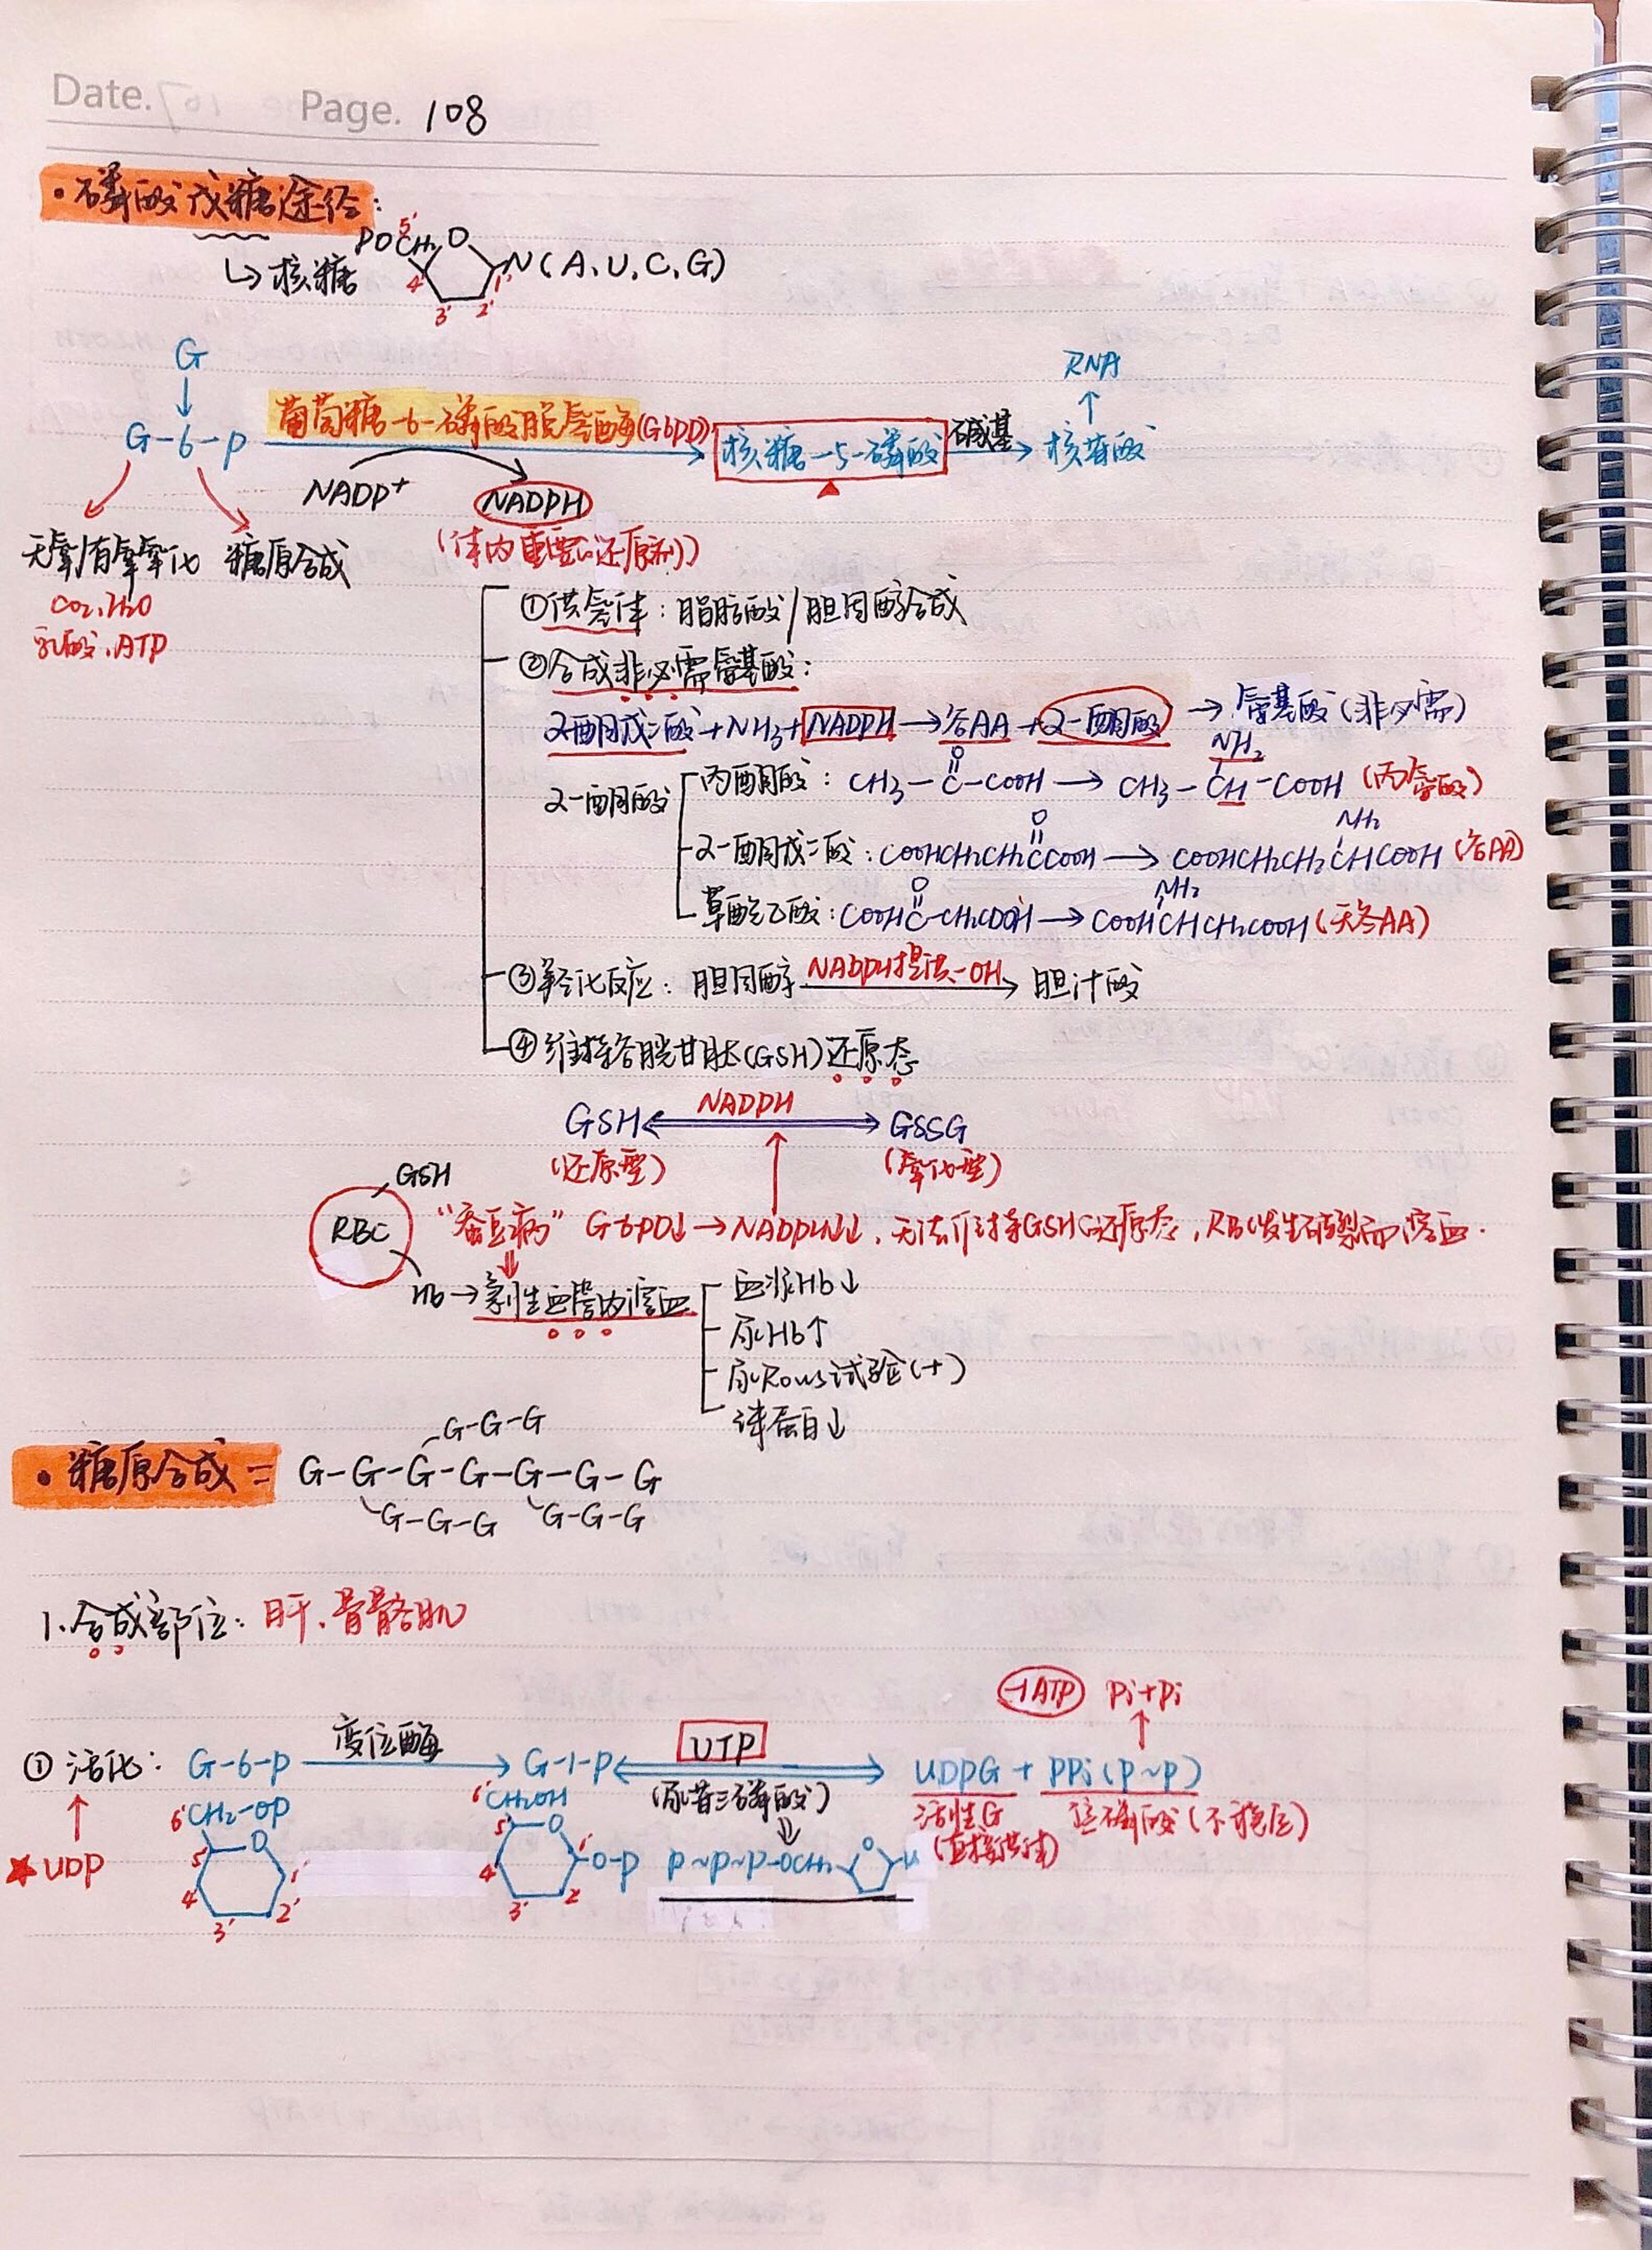 Date. Page. 108
·磷酸戊糖途径:
↳核糖 POCH₂ O N(A、U、C、G)
5' 4' 3' 2' 1'
G
↓
RNA
↑
G-6-p 葡萄糖-6-磷酸脱氢酶(G6PD) 核糖-5-磷酸 碱基→ 核苷酸
NADP⁺ NADPH
(体内重要的还原剂)
无氧/有氧氧化 糖原合成
CO₂、H₂O
乳酸、ATP
①供氢体:脂肪酸/胆固醇合成
②合成非必需氨基酸:
α-酮戊二酸+NH₃+NADPH→谷AA+α-酮酸→氨基酸(非必需)
α-酮酸
丙酮酸:CH₃-C(=O)-COOH→CH₃-CH(NH₂)-COOH(丙氨酸)
α-酮戊二酸:COOHCH₂CH₂C(=O)COOH→COOHCH₂CH₂CH(NH₂)COOH(谷AA)
草酰乙酸:COOHC(=O)-CH₂COOH→COOHCH(NH₂)CH₂COOH(天冬AA)
③羟化反应:胆固醇 NADPH提供-OH→ 胆汁酸
④维持谷胱甘肽(GSH)还原态
GSH NADPH GSSG
(还原型) (氧化型)
RBC GSH
"蚕豆病" G-6PD↓→NADPH↓↓,无法维持GSH还原态,RBC发生破裂而溶血.
Hb→急性血管内溶血
血浆Hb↓
尿Hb↑
尿Rous试验(+)
珠蛋白↓
·糖原合成= G-G-G-G-G-G-G
G-G-G
G-G-G G-G-G
1.合成部位:肝、骨骼肌
-1ATP Pi+Pi
↑
①活化:G-6-p 变位酶→ G-1-p UTP UDPG + PPi(p~p)
(尿苷三磷酸) 活性G 焦磷酸(不稳定)
(直接供体)
↑
★UDP
6'CH₂-OP O 5' 4' 3' 2' 1'
6'CH₂OH O 5' 4' 3' 2' 1' O-P
p~p~p-OCH₂ O U